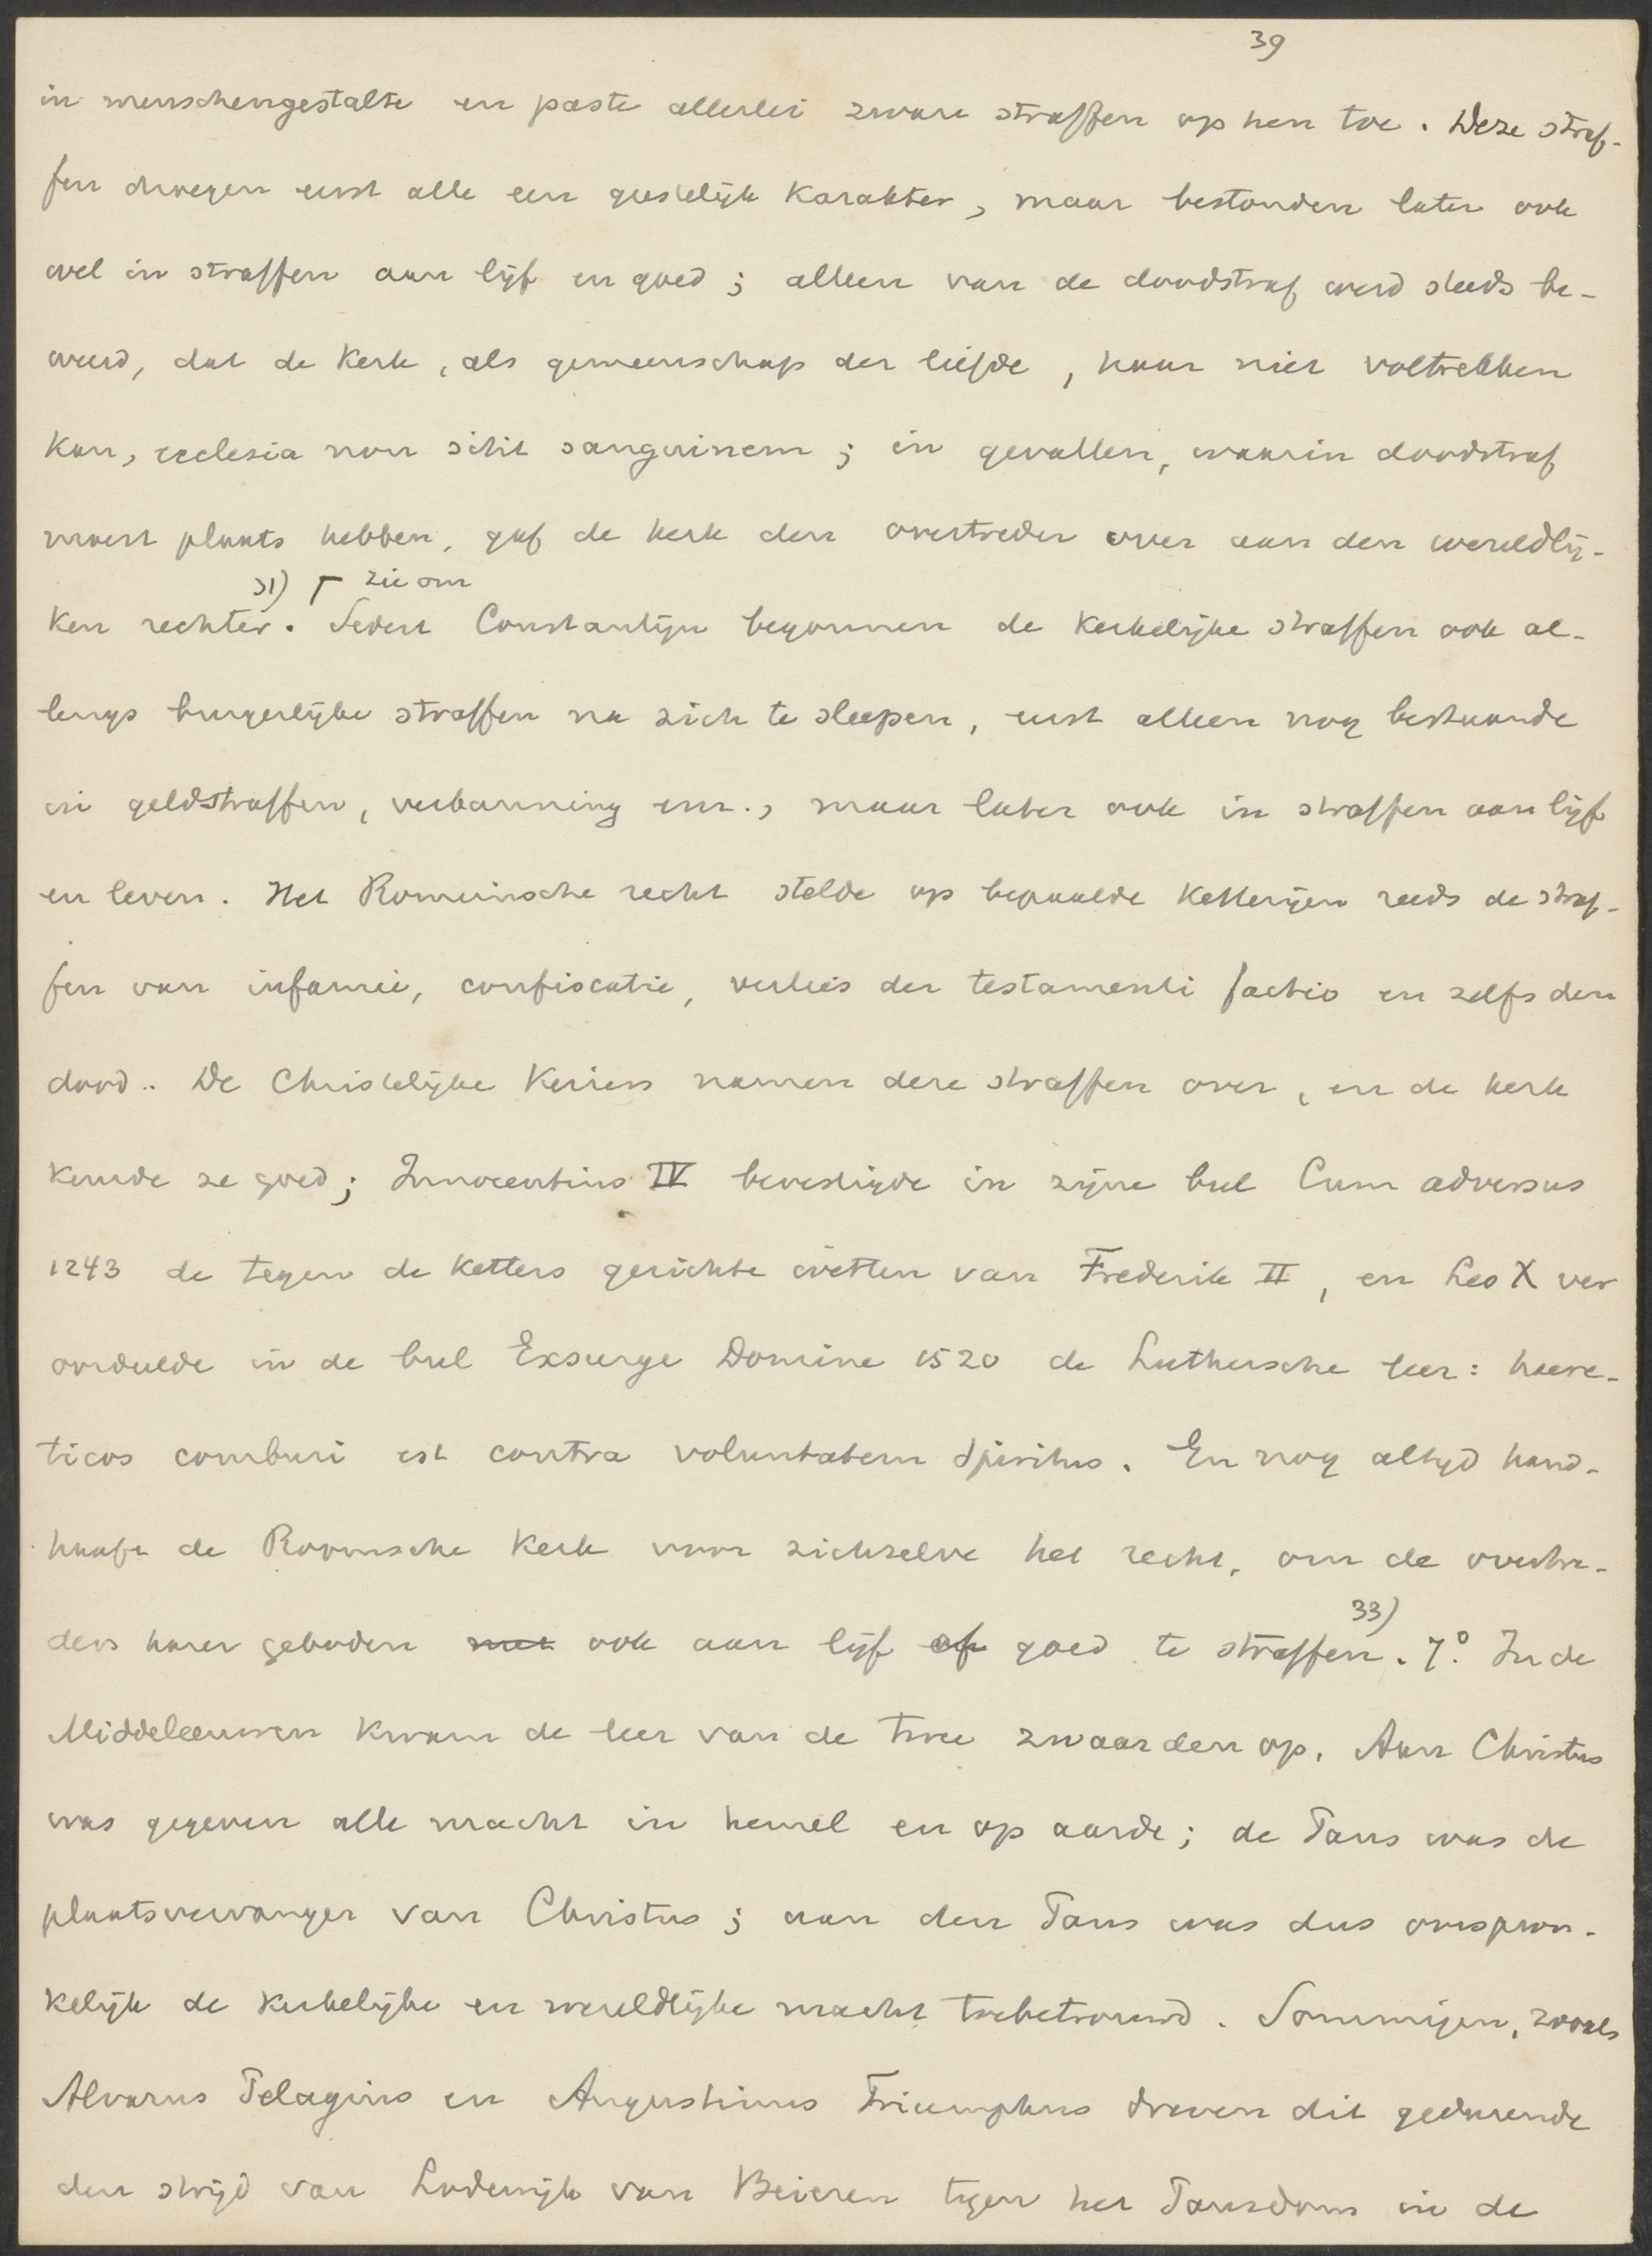 39
in menschengestalte en paste allerlei zware straffen op hen toe. Deze straf-
fen droegen eerst alle een geestelijk karakter, maar bestonden later ook
wel in straffen aan lijf en goed; alleen van de doodstraf werd steeds be-
weerd, dat de kerk, als gemeenschap der liefde, haar niet voltrekken
kan, ecclesia non sitit sanguinem; in gevallen, waarin doodstraf
moest plaats hebben, gaf de kerk den overtreder over aan den wereldlij-
31) ┌ zie om
ken rechter. Sedert Constantijn begonnen de kerkelijke straffen ook al-
lengs burgerlijke straffen na zich te sleepen, eerst alleen nog bestaande
in geldstraffen, verbanning enz., maar later ook in straffen aan lijf
en leven. Het Romeinsche recht stelde op bepaalde ketterijen reeds de straf-
fen van infamie, confiscatie, verlies der testamenti factio en zelfs den
dood. De Christelijke keizers namen deze straffen over, en de kerk
keurde ze goed; Innocentius IV bevestigde in zijne bul Cum adversus
1243 de tegen de ketters gerichte wetten van Frederik II, en Leo X ver
oordeelde in de bul Exsurge Domine 1520 de Luthersche leer: haere-
ticos comburi est contra voluntatem Spiritus. En nog altijd hand-
haaft de Roomsche kerk voor zichzelve het recht, om de overtre-
33)
ders harer geboden met ook aan lijf of goed te straffen. 7°. In de
Middeleeuwen kwam de leer van de twee zwaarden op. Aan Christus
was gegeven alle macht in hemel en op aarde; de Paus was de
plaatsvervanger van Christus; aan den Paus was dus oorspron-
kelijk de kerkelijke en wereldlijke macht toebetrouwd. Sommigen, zooals
Alvarus Pelagius en Augustinus Triumphus dreven dit gedurende
den strijd van Lodewijk van Beieren tegen het Pausdom in de